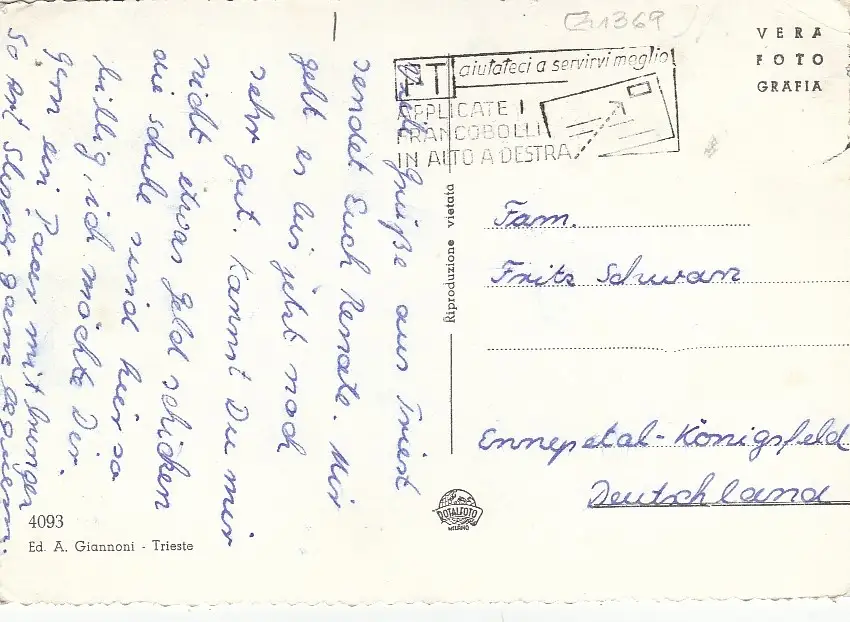 Viele Grüße aus Triest
sendet Euch Renate. Mir
geht es bis jetzt noch
sehr gut. Kannst Du mir
nicht etwas Geld schicken
die Schuhe sind hier so
billig, ich möchte Dir
gern ein Paar mitbringen
So Art Slipper ganz bequem.
4093
Ed. A. Giannoni - Trieste
Riproduzione vietata
ROTALFOTO
MILANO
aiutateci a servirvi meglio
APPLICATE I
FRANCOBOLLI
IN ALTO A DESTRA
1369
VERA
FOTO
GRAFIA
Fam.
Fritz Schwarz
Ennepetal-Königsfeld
Deutschland